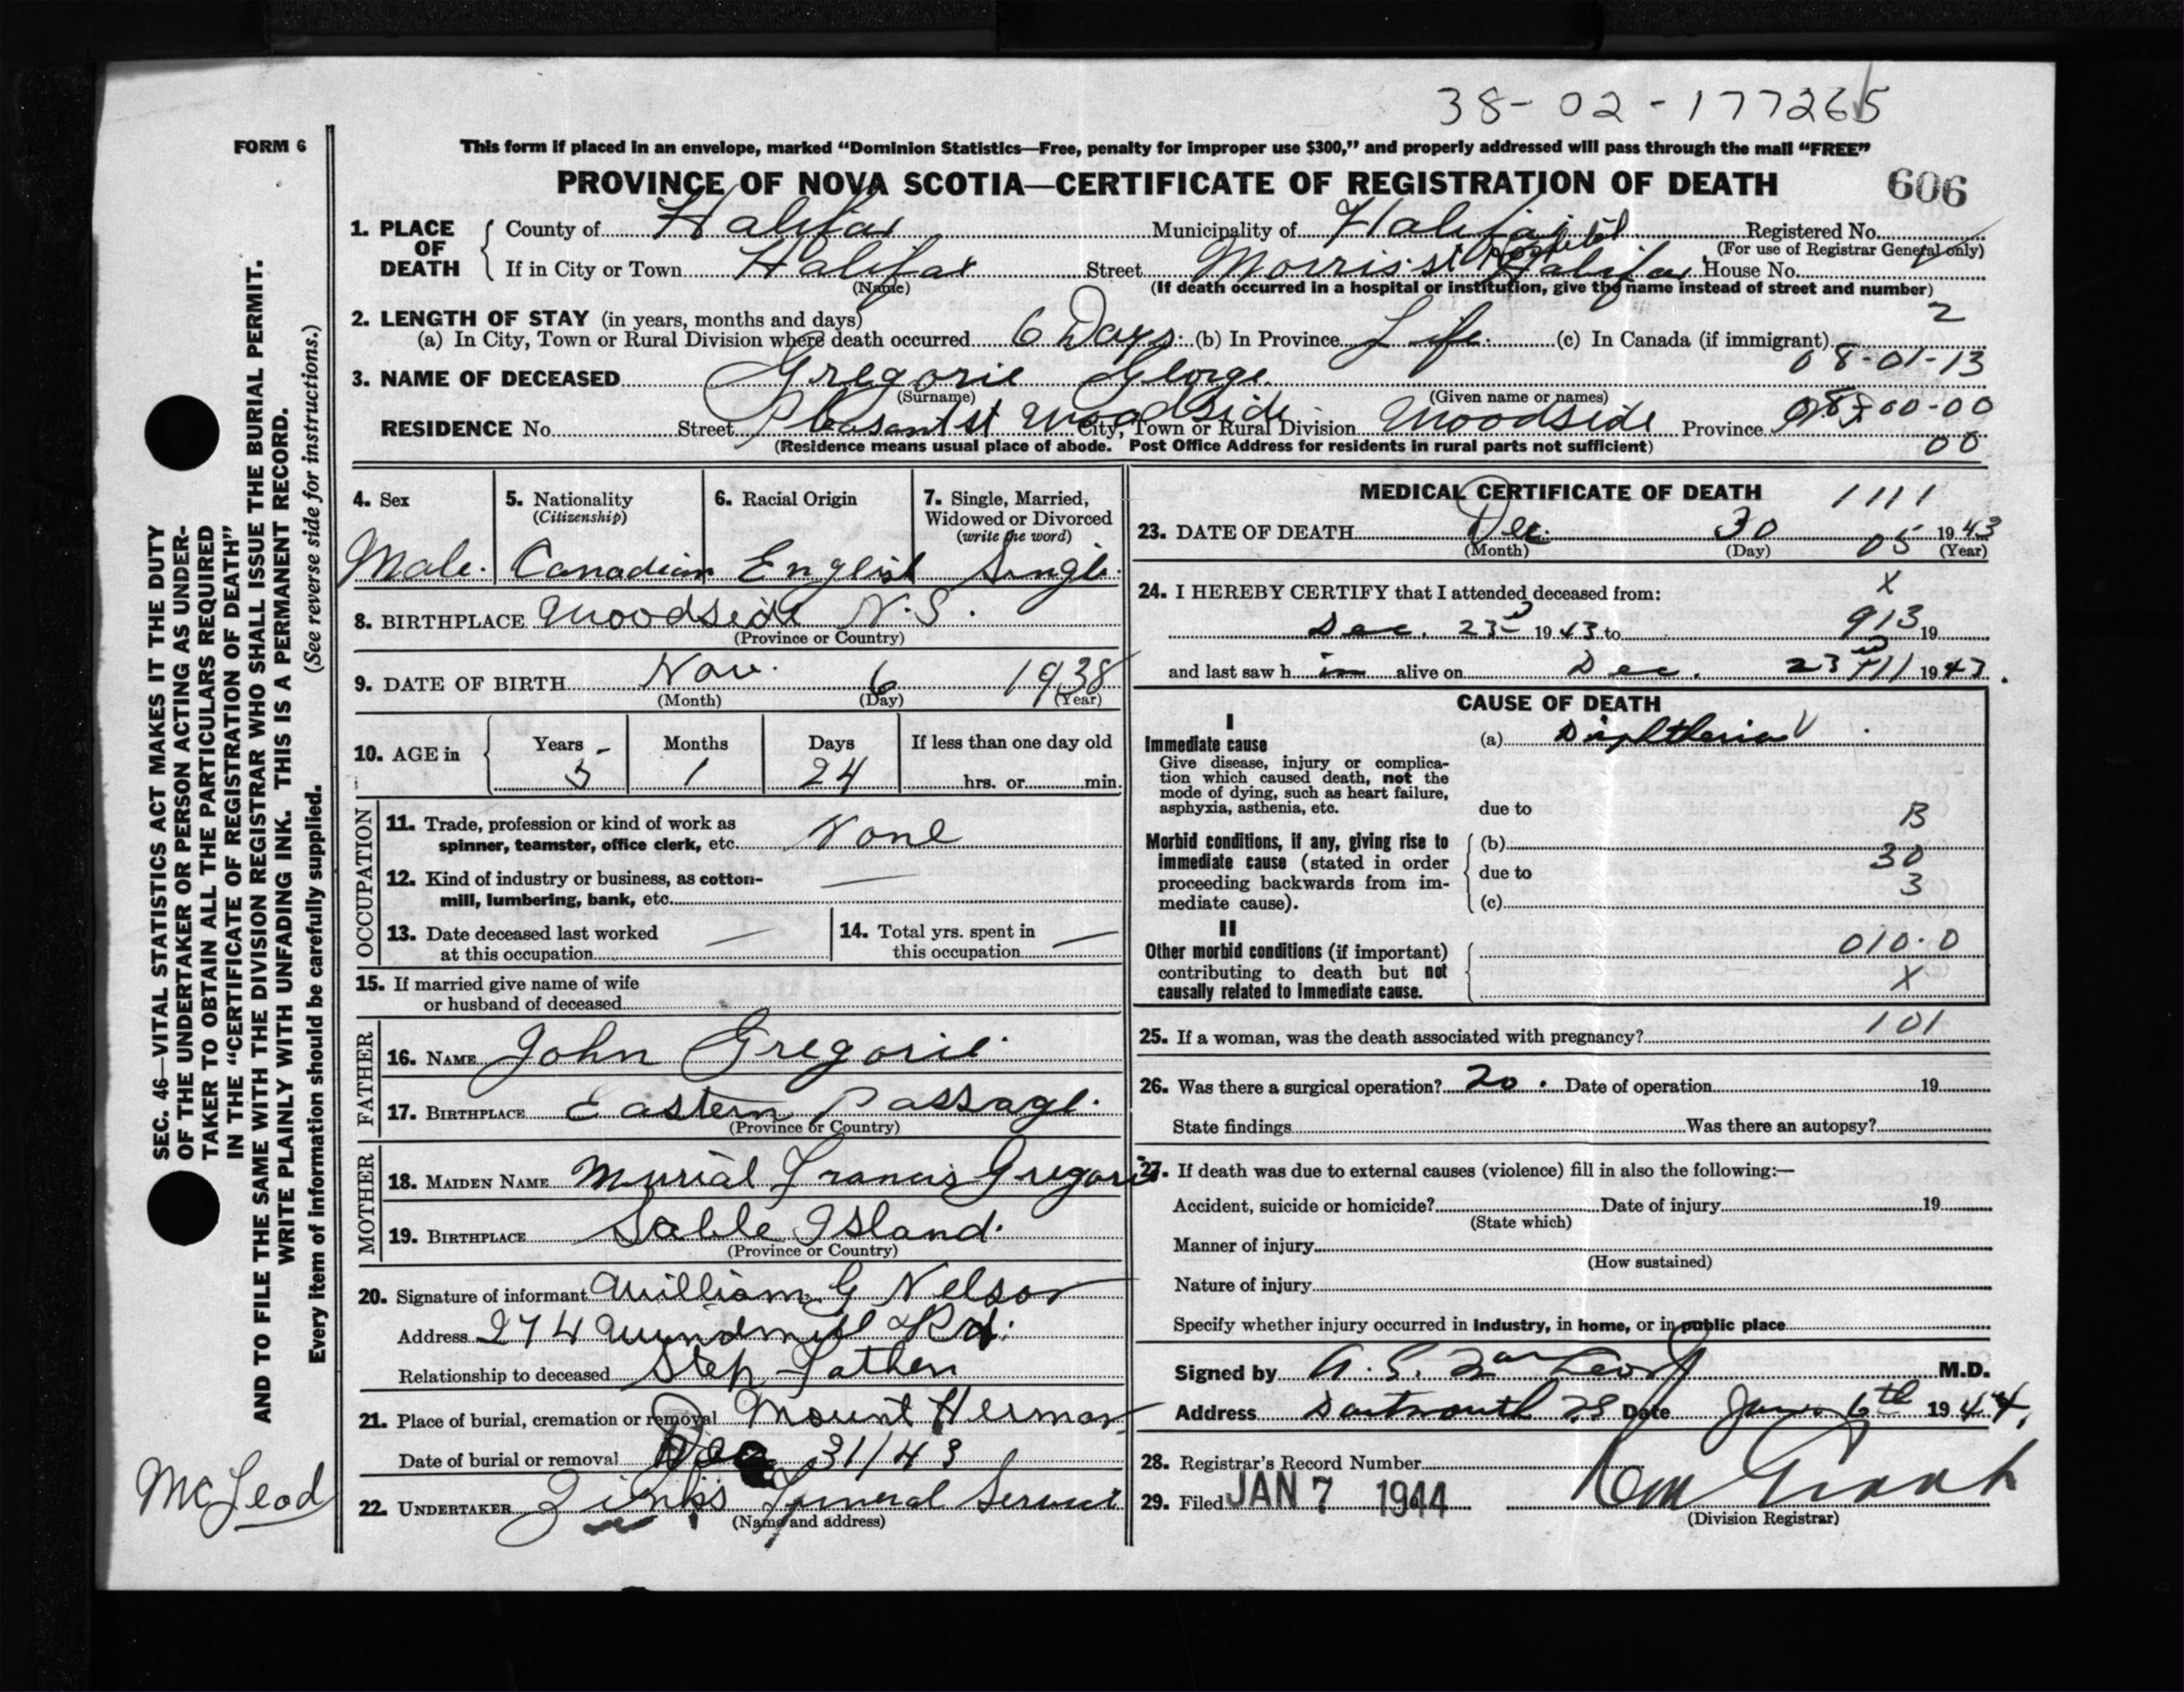 38-02-177265
FORM 6
This form if placed in an envelope, marked "Dominion Statistics—Free, penalty for improper use $300," and properly addressed will pass through the mail "FREE"
PROVINCE OF NOVA SCOTIA—CERTIFICATE OF REGISTRATION OF DEATH 606
1. PLACE OF DEATH
County of Halifax Municipality of Halifax Registered No.
(For use of Registrar General only)
If in City or Town Halifax Street Morris st Hospital Halifax House No.
(Name) (If death occurred in a hospital or institution, give the name instead of street and number)
2. LENGTH OF STAY (in years, months and days) 2
(a) In City, Town or Rural Division where death occurred 6 Days. (b) In Province Life. (c) In Canada (if immigrant)
08-01-13
3. NAME OF DECEASED Gregorie George
(Surname) (Given name or names)
RESIDENCE No. Street Pleasant st Woodside City, Town or Rural Division Woodside Province 00-00
00
(Residence means usual place of abode. Post Office Address for residents in rural parts not sufficient)
4. Sex Male.
5. Nationality (Citizenship) Canadian
6. Racial Origin English
7. Single, Married, Widowed or Divorced (write the word) Single.
8. BIRTHPLACE Woodside N.S.
(Province or Country)
9. DATE OF BIRTH Nov. 6 1938
(Month) (Day) (Year)
10. AGE in Years 5 Months 1 Days 24 If less than one day old
hrs. or min.
OCCUPATION
11. Trade, profession or kind of work as
spinner, teamster, office clerk, etc. None
12. Kind of industry or business, as cotton-
mill, lumbering, bank, etc. —
13. Date deceased last worked
at this occupation —
14. Total yrs. spent in
this occupation —
15. If married give name of wife
or husband of deceased
FATHER
16. NAME John Gregorie.
17. BIRTHPLACE Eastern Passage.
(Province or Country)
MOTHER
18. MAIDEN NAME Murial Francis Gregorie
19. BIRTHPLACE Sable Island.
(Province or Country)
20. Signature of informant William G Nelson
Address 274 Windmill Rd.
Relationship to deceased Step-Father
21. Place of burial, cremation or removal Mount Hermon
Date of burial or removal Dec 31/43
22. UNDERTAKER Zink's Funeral Service
(Name and address)
MEDICAL CERTIFICATE OF DEATH 1111
23. DATE OF DEATH Dec. 30 05 1943
(Month) (Day) (Year)
24. I HEREBY CERTIFY that I attended deceased from: X
Dec. 23 1943 to 913 19
and last saw h im alive on Dec. 23 1943.
CAUSE OF DEATH
I
Immediate cause
Give disease, injury or complica-
tion which caused death, not the
mode of dying, such as heart failure,
asphyxia, asthenia, etc.
(a) Diphtheria
due to
B
Morbid conditions, if any, giving rise to
immediate cause (stated in order
proceeding backwards from im-
mediate cause).
(b)
30
due to
3
(c)
II
Other morbid conditions (if important)
contributing to death but not
causally related to immediate cause.
010.0
X
101
25. If a woman, was the death associated with pregnancy?
26. Was there a surgical operation? no. Date of operation 19
State findings Was there an autopsy?
27. If death was due to external causes (violence) fill in also the following:—
Accident, suicide or homicide? Date of injury 19
(State which)
Manner of injury
(How sustained)
Nature of injury
Specify whether injury occurred in industry, in home, or in public place
Signed by M.D.
Address Dartmouth NS Date Jan. 6th 1944.
28. Registrar's Record Number
29. Filed JAN 7 1944
(Division Registrar)
SEC. 46—VITAL STATISTICS ACT MAKES IT THE DUTY
OF THE UNDERTAKER OR PERSON ACTING AS UNDER-
TAKER TO OBTAIN ALL THE PARTICULARS REQUIRED
IN THE "CERTIFICATE OF REGISTRATION OF DEATH"
AND TO FILE THE SAME WITH THE DIVISION REGISTRAR WHO SHALL ISSUE THE BURIAL PERMIT.
WRITE PLAINLY WITH UNFADING INK. THIS IS A PERMANENT RECORD.
Every item of information should be carefully supplied. (See reverse side for instructions.)
McLeod